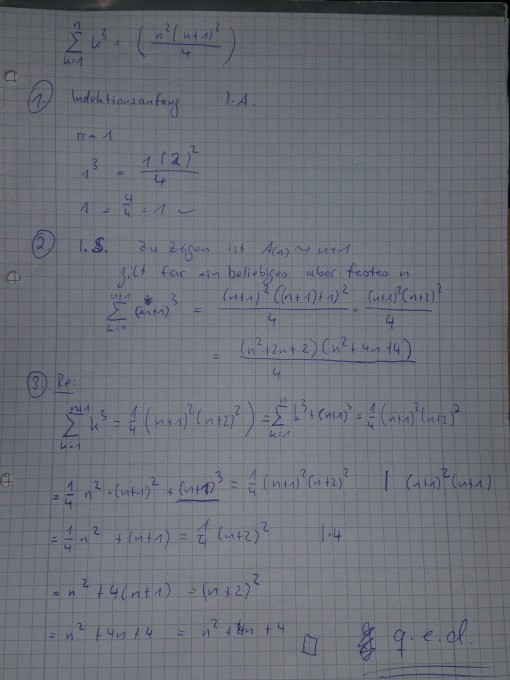 ∑_{k=1}^{n} k³ = ( n²(n+1)² / 4 )
1. Induktionsanfang I.A.
n = 1
1³ = 1(2)² / 4
1 = 4/4 = 1 ✓
2 I.S. zu zeigen ist A(n) ⇝ n+1
gilt für ein beliebiges aber festes n
∑_{k=1}^{n+1} (n+1)³ = (n+1)²((n+1)+1)² / 4 = (n+1)²(n+2)² / 4
= (n²+2n+2)(n²+4n+4) / 4
3 Re:
∑_{k=1}^{n+1} k³ = 1/4 (n+1)²(n+2)²) = ∑_{k=1}^{n} k³ + (n+1)³ = 1/4 (n+1)²(n+2)²
= 1/4 n² · (n+1)² + (n+1)³ = 1/4 (n+1)²(n+2)² | (n+1)²(n+1)
= 1/4 n² + (n+1) = 1/4 (n+2)² | · 4
= n² + 4(n+1) = (n+2)²
= n² + 4n + 4 = n² + 4n + 4 □ q.e.d.